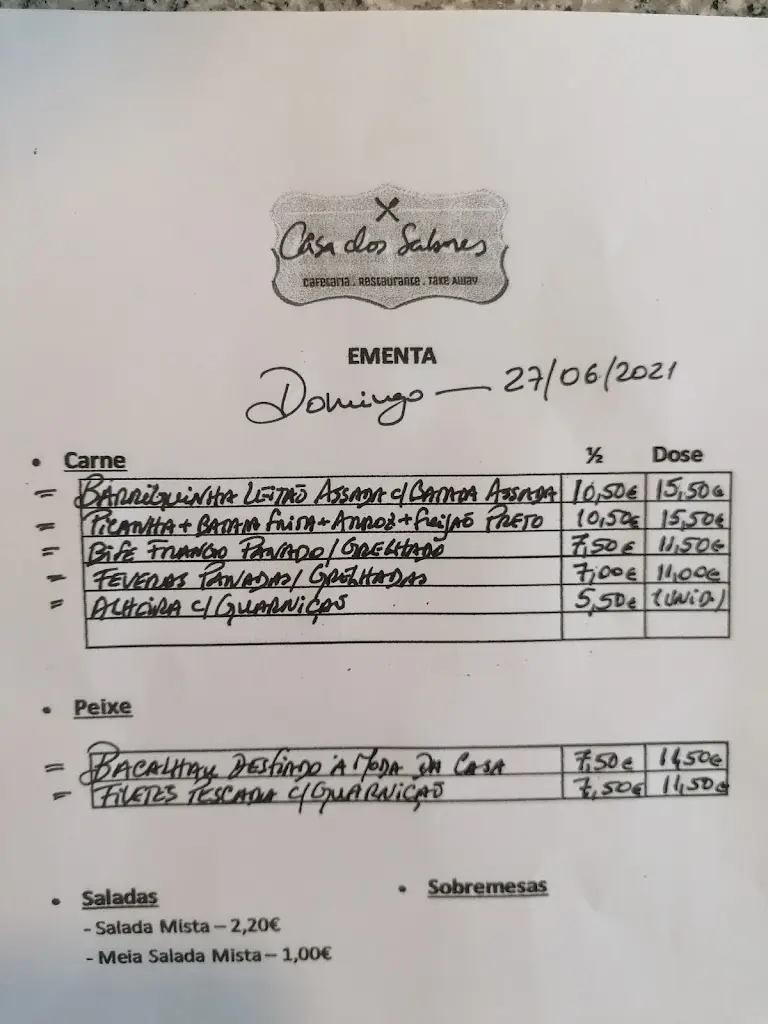 Casa dos Sabores
Cafetaria . Restaurante . Take Away
EMENTA
Domingo — 27/06/2021
• Carne ½ Dose
= BARRIGUINHA LEITÃO ASSADA C/ BATATA ASSADA 10,50€ 15,50€
= PICANHA + BATATA FRITA + ARROZ + FEIJÃO PRETO 10,50€ 15,50€
= BIFE FRANGO PANADO/GRELHADO 7,50€ 11,50€
= FEVERAS PANADAS/GRELHADAS 7,00€ 11,00€
= ALHEIRA C/GUARNIÇÃO 5,50€ (UNID.)
• Peixe
= BACALHAU DESFIADO À MODA DA CASA 7,50€ 11,50€
= FILETES PESCADA C/GUARNIÇÃO 7,50€ 11,50€
• Saladas
- Salada Mista – 2,20€
- Meia Salada Mista – 1,00€
• Sobremesas